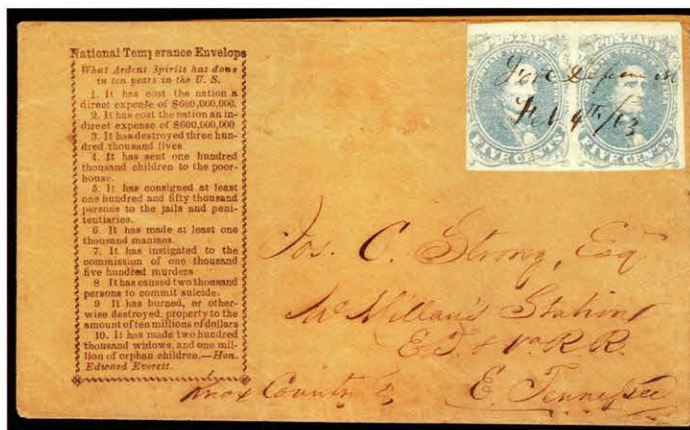 National Temperance Envelope
What Ardent Spirits has done
in ten years in the U. S.
1. It has cost the nation a
direct expense of $600,000,000.
2. It has cost the nation an in-
direct expense of $600,000,000
3. It has destroyed three hun-
dred thousand lives
4. It has sent one hundred
thousand children to the poor-
house.
5. It has consigned at least
one hundred and fifty thousand
persons to the jails and peni-
tentiaries.
6. It has made at least one
thousand maniacs.
7. It has instigated to the
commission of one thousand
five hundred murders
8 It has caused two thousand
persons to commit suicide.
9 It has burned, or other-
wise destroyed, property to the
amount of ten millions of dollars
10. It has made two hundred
thousand widows, and one mil-
lion of orphan children.—Hon.
Edward Everett.
POSTAGE POSTAGE
Feb 9th/63
FIVE CENTS FIVE CENTS
Jos. C. Strong, Esq
McMillan's Station
E. T. & Va R. R.
Knox County E. Tennessee